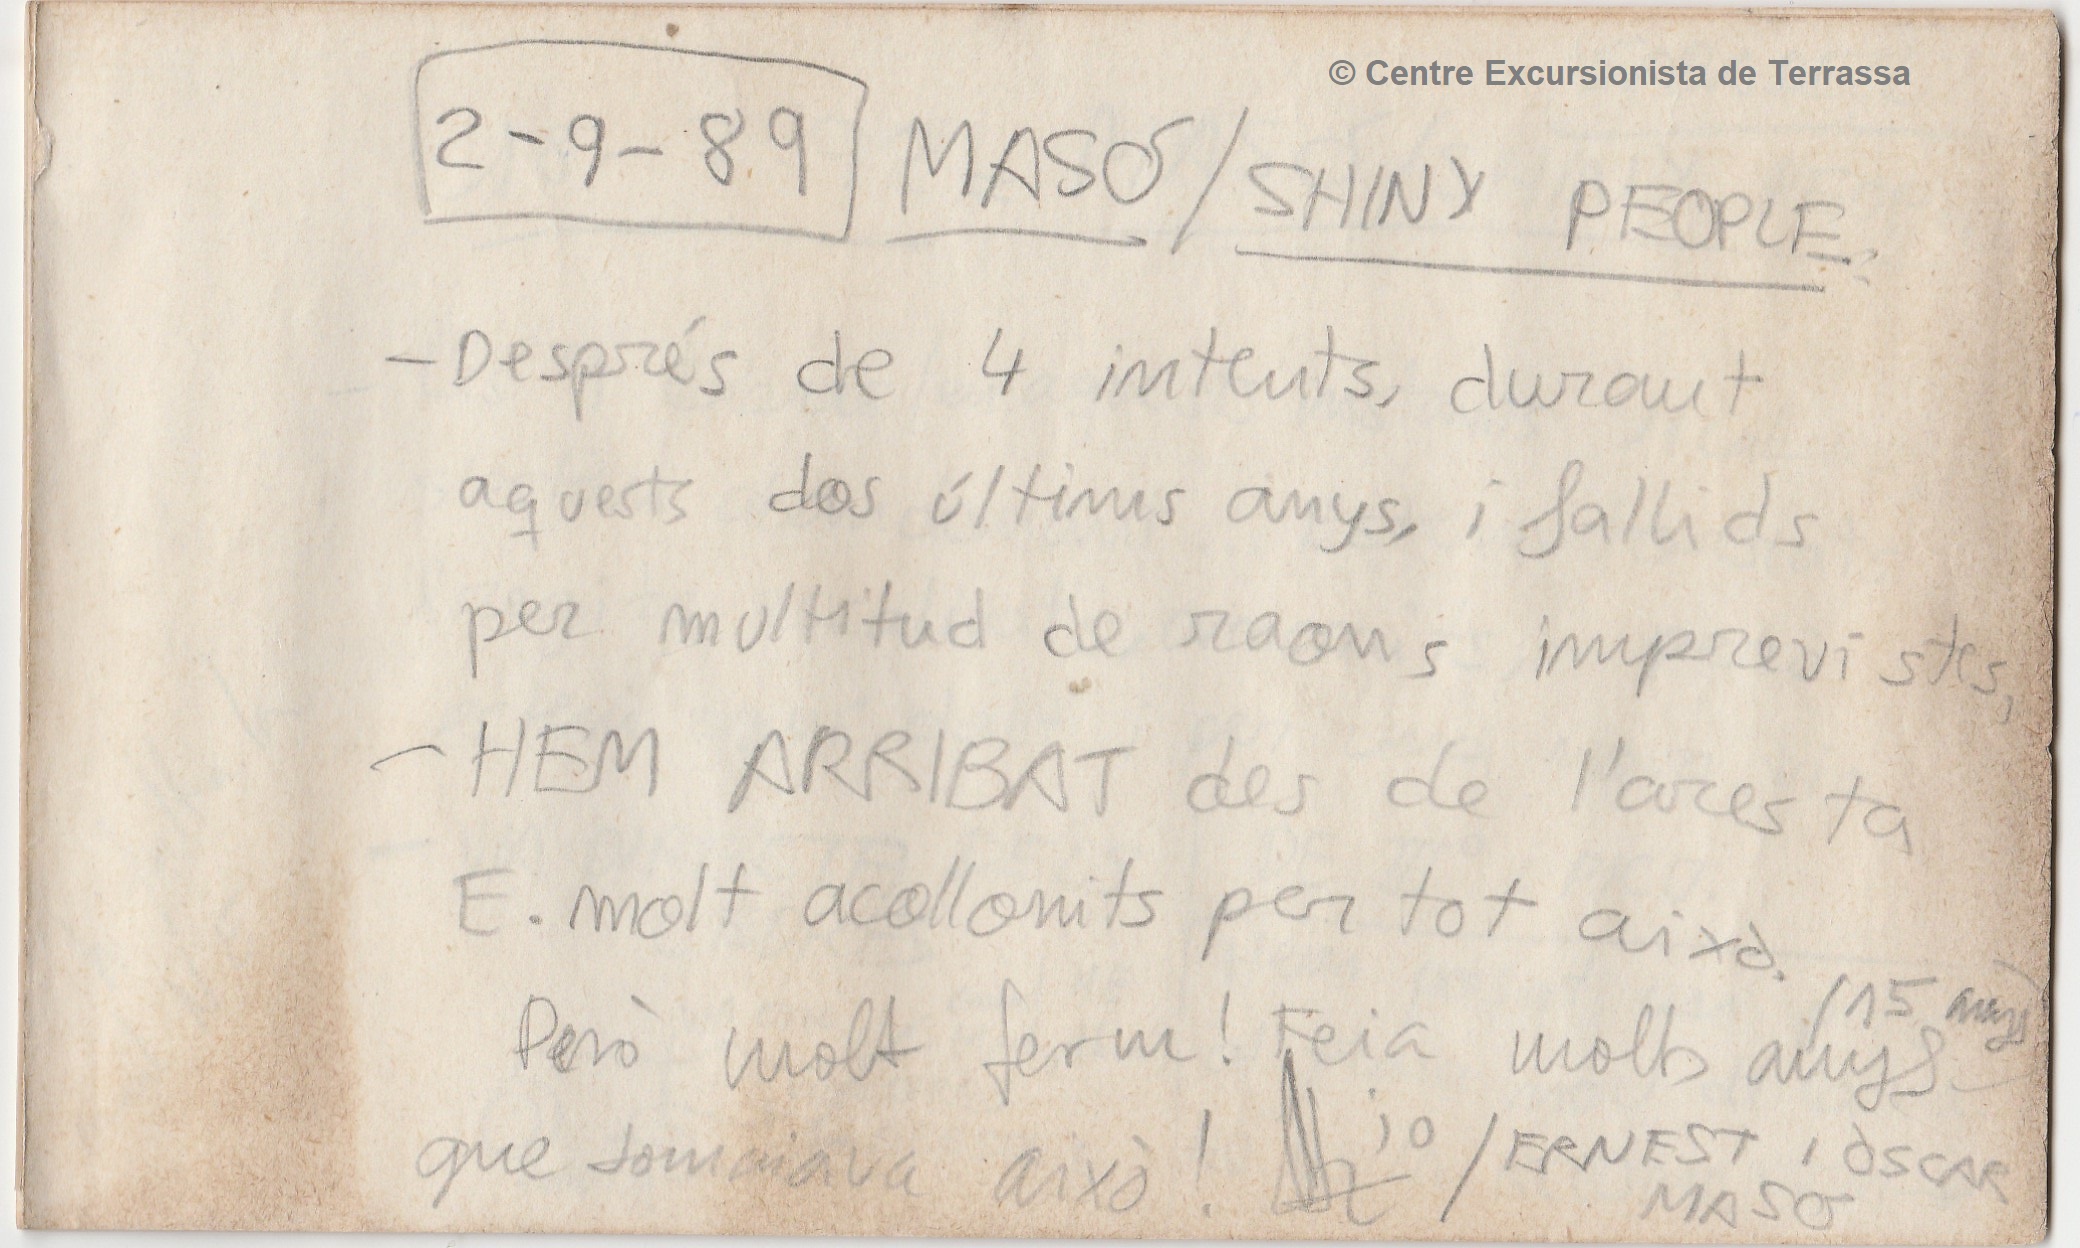 © Centre Excursionista de Terrassa
2-9-89 MASÓ / SHINY PEOPLE.
- Després de 4 intents, durant
aquests dos últims anys, i fallids
per multitud de raons imprevistes,
- HEM ARRIBAT des de l'aresta
E. molt acollonits per tot això.
Però molt ferm! Feia molts anys (15 anys)
que somiava això! / ERNEST i ÒSCAR
MASÓ